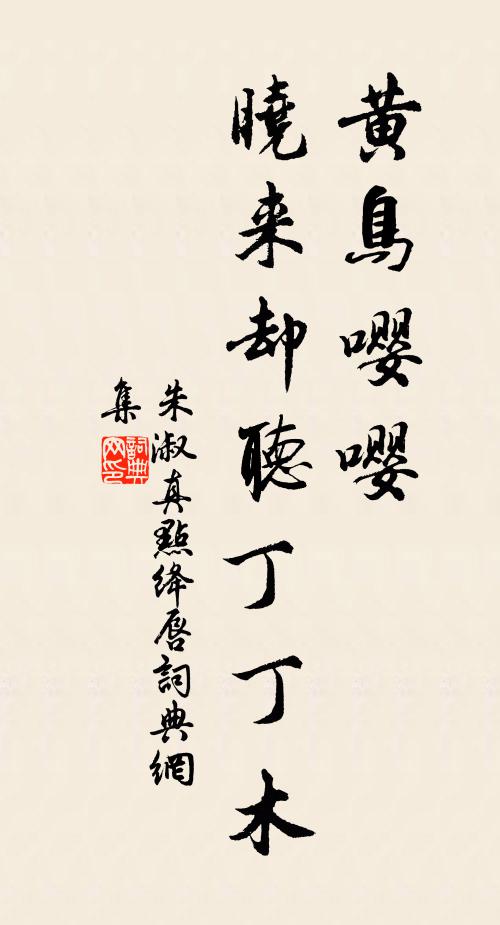 黄鳥嚶嚶
曉来却聽丁丁木
朱淑真點绛唇詞典網
集
詞典网印